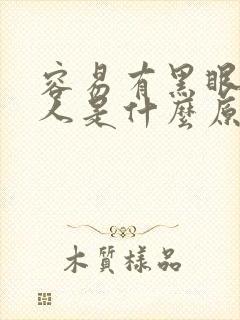 容易有黑眼
人是什麼原
木質樣品